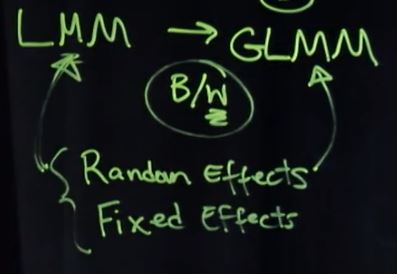 LMM → GLMM
B/W
Randon Effects
Fixed Effects